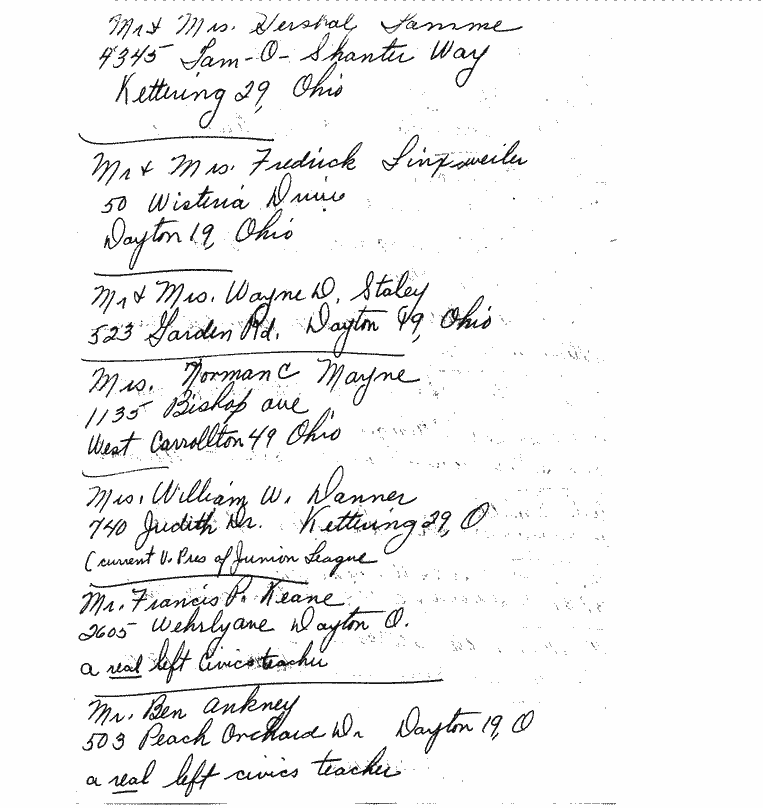 Mr & Mrs. Hershal Tamme
4345 Tam-O-Shanter Way
Kettering 29, Ohio
Mr & Mrs. Fredrick Linxweiler
50 Wisteria Drive
Dayton 19, Ohio
Mr & Mrs. Wayne D. Staley
523 Garden Rd. Dayton 49, Ohio
Mrs. Norman C Mayne
1135 Bishop ave
West Carrollton 49 Ohio
Mrs. William W. Danner
740 Judith Dr. Kettering 29, O
(current V. Pres of Junion League
Mr. Francis P. Keane
2605 Wehrly ave Dayton O.
a real left Civics teacher
Mr. Ben Ankney
503 Peach Orchard Dr Dayton 19, O
a real left civics teacher